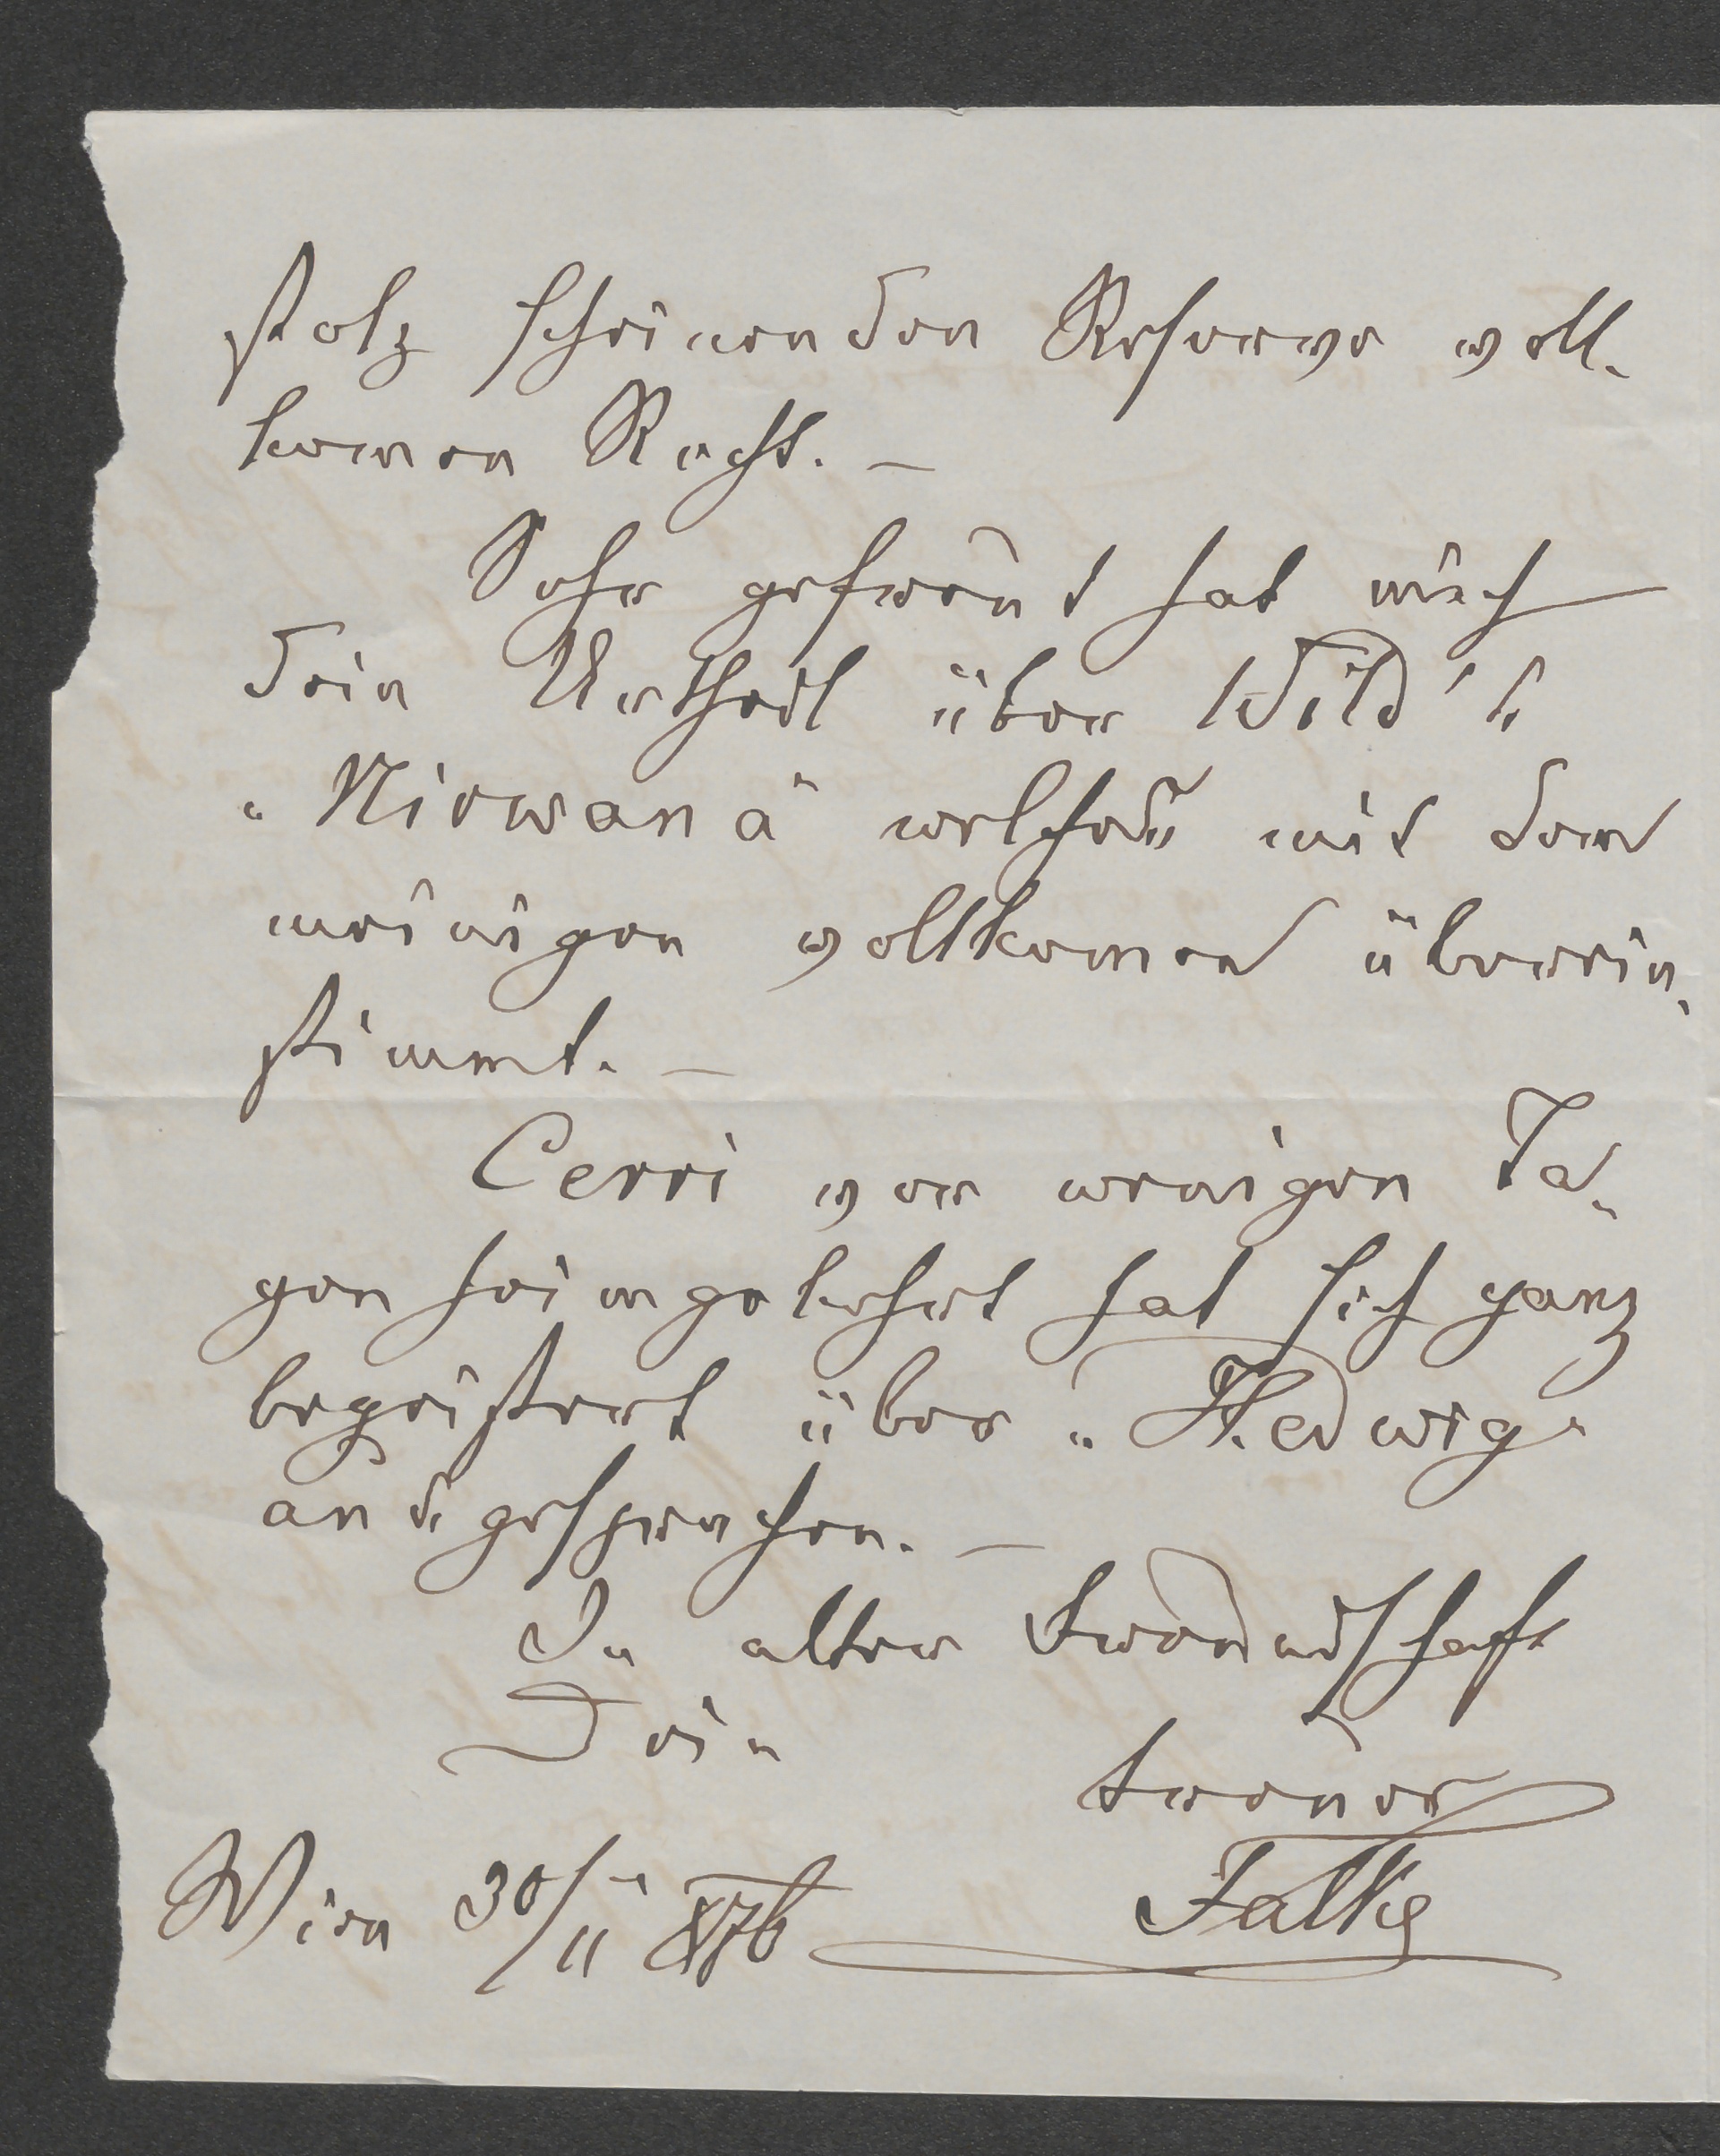 stolz scheinenden Reserve voll-
komen Recht. —
Sehr gefreut hat mich
dein Urtheil über Wild's
„Nirwana" welches mit dem
meinigen vollkomen überein-
stimmt. —
Cerri vor wenigen Ta-
gen heimgekehrt hat sich ganz
begeistert über „Hedwig"
ausgesprochen. —
In alter Freundschaft
Dein
treuer
Falke
Wien 30/11 876